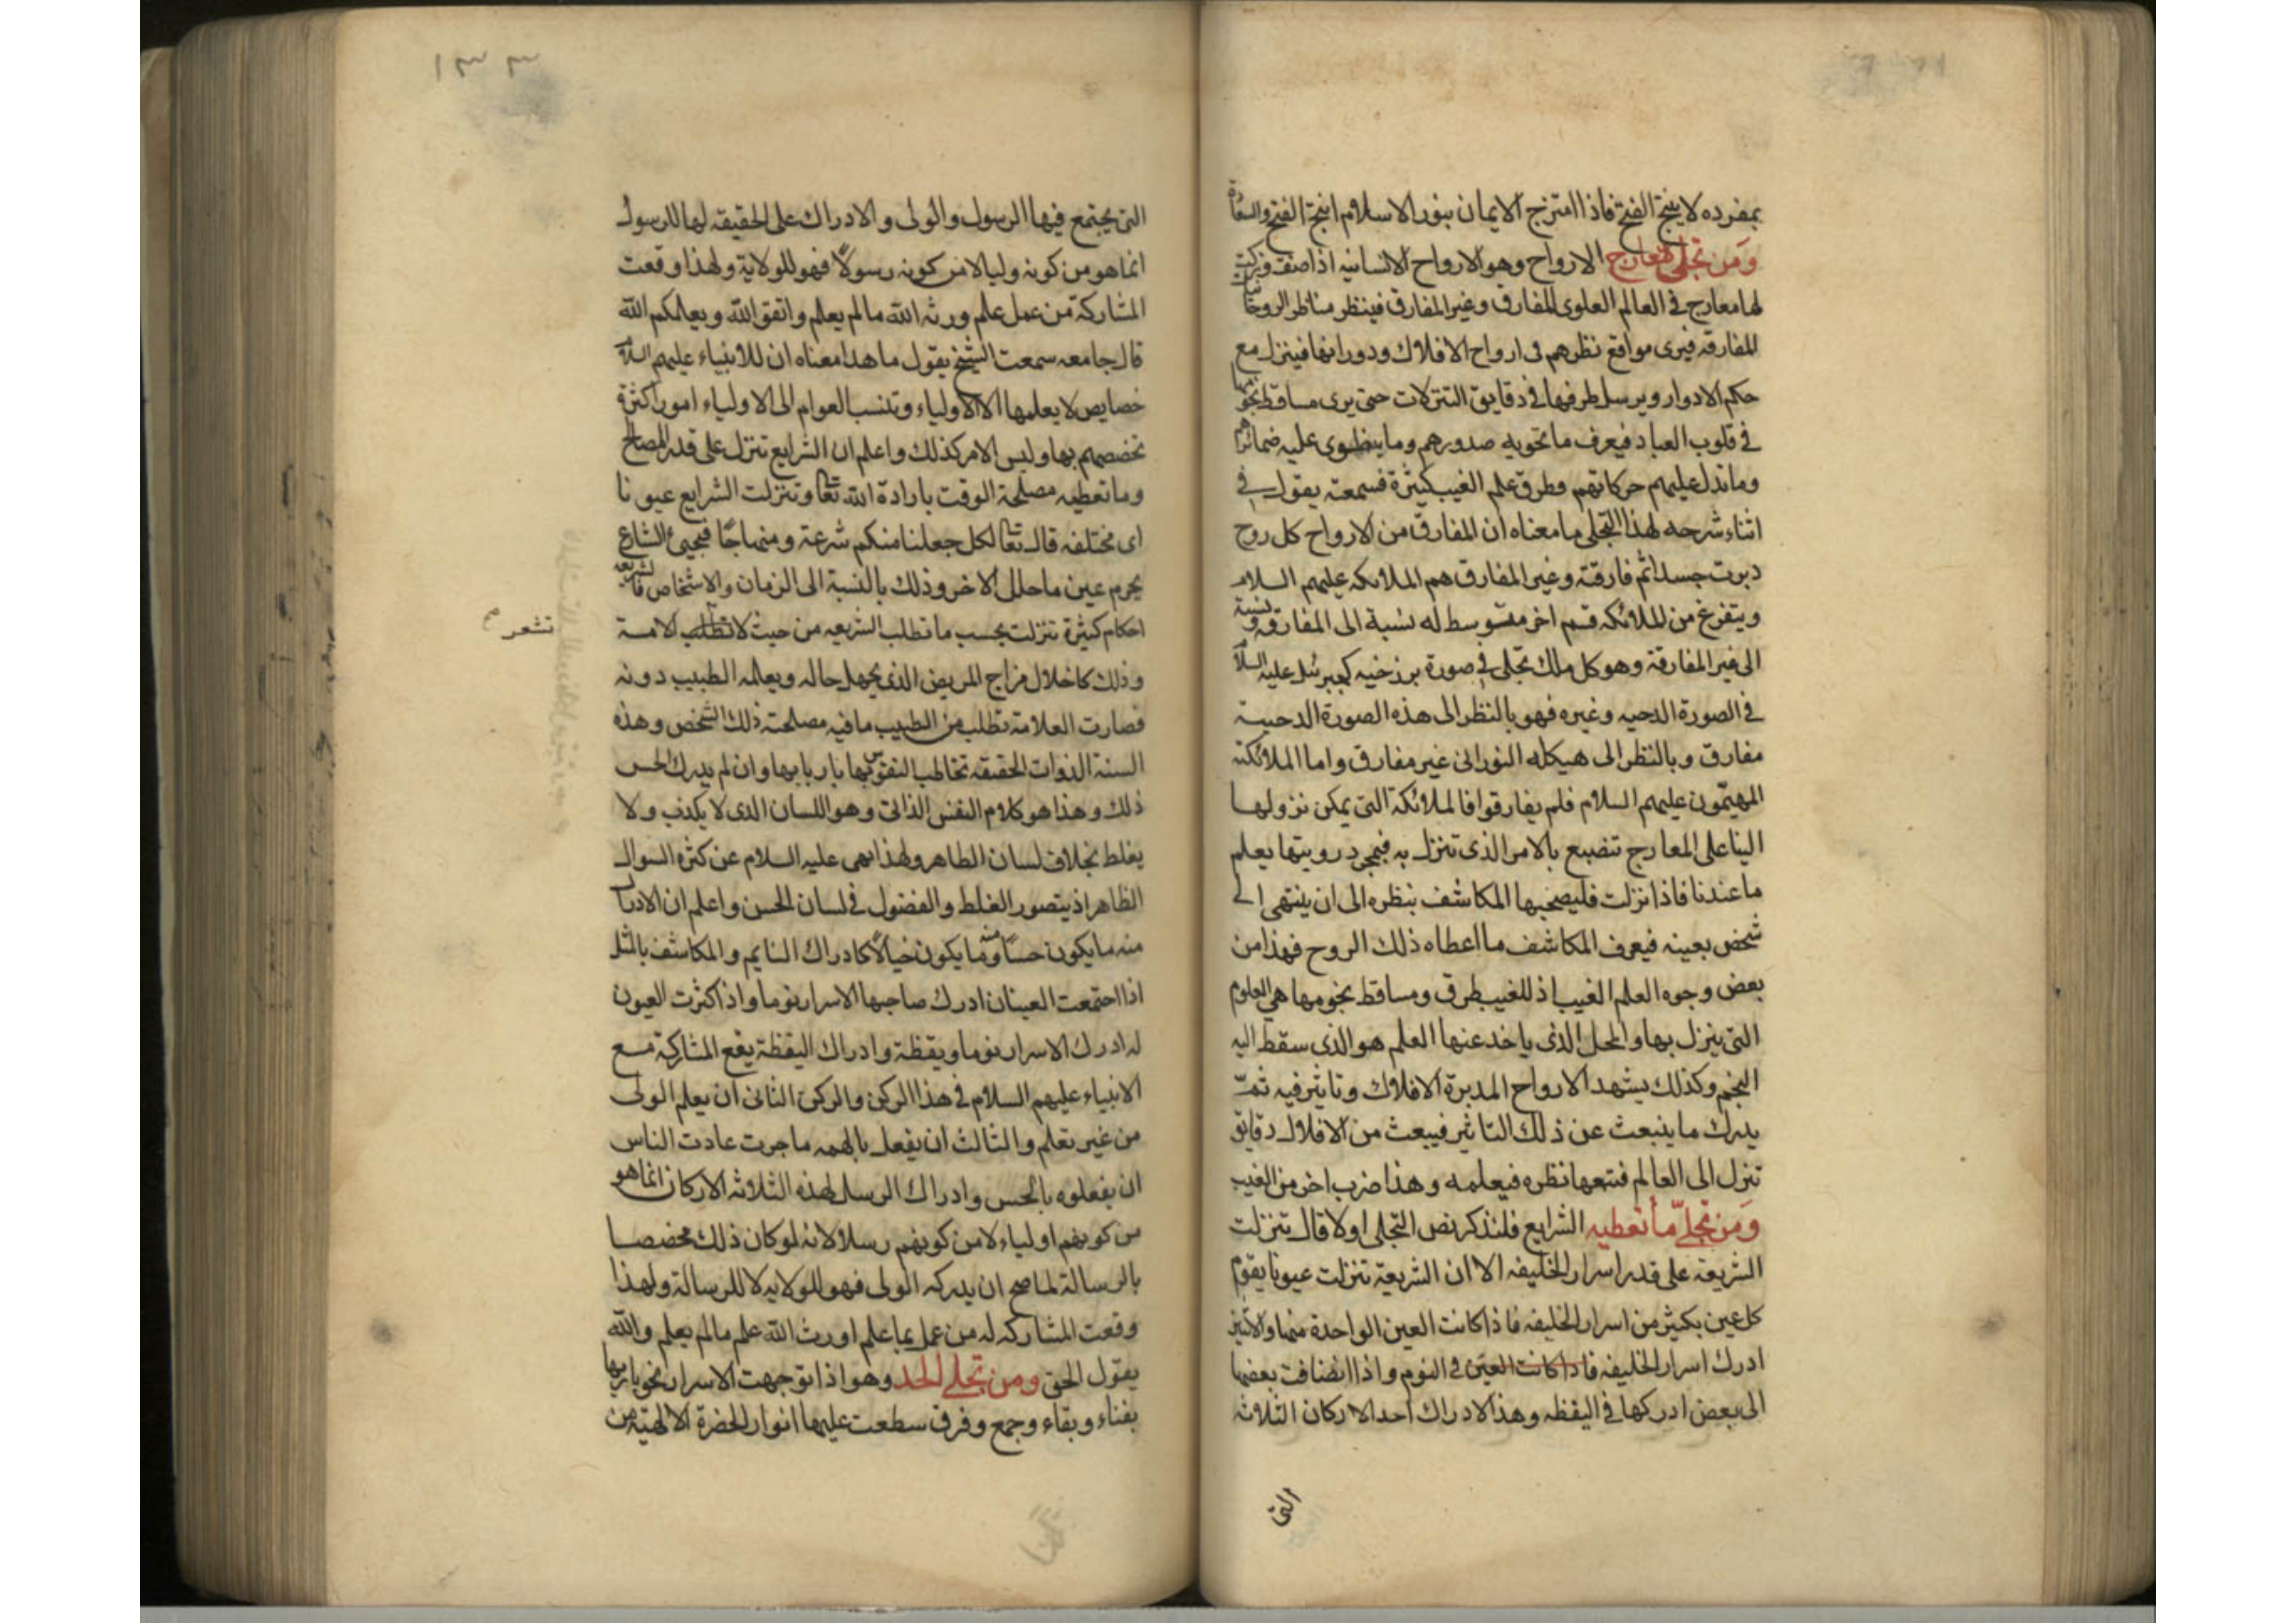 بمفرده لا ينتج الفتح فاذا امتزج الايمان بنور الاسلام انتج الفتح والسعادة
ومن تجلى معارج الارواح وهو الارواح الانسانيه اذا صفت وزكت
لها معارج في العالم العلوى المفارق وغير المفارق فينظر مناظر الروحانيات
المفارقه فيرى مواقع نظرهم فى ارواح الافلاك ودورانها فينزل مع
حكم الادوار ويرسل طرفها في دقايق التنزلات حتى يرى مساقط نجومها
في قلوب العباد فيعرف ما تحويه صدورهم وما ينطوى عليه ضمائرهم
وما تدل عليهم حركاتهم وطرق علم الغيب كثيرة فسمعته يقول في
اثناء شرحه لهذا التجلى ما معناه ان المفارق من الارواح كل روح
دبرت جسدا ثم فارقته وغير المفارق هم الملائكه عليهم السلام
ويتفرغ من الملائكه قسم اخر متوسط له نسبة الى المفارقه ونسبة
الى غير المفارقة وهو كل ملك تجلى في صورة برزخيه كجبرئيل عليه السلام
في الصورة الدحيه وغيره فهو بالنظر الى هذه الصورة الدحيية
مفارق وبالنظر الى هيكله النورانى غير مفارق واما الملائكة
المهيمون عليهم السلام فلم يفارقوا فالملائكة التى يمكن نزولها
الينا على المعارج تنصبغ بالامر الذى تنزل به فبمجرد رويتها يعلم
ما عندنا فاذا نزلت فليصحبها المكاشف بنظره الى ان ينتهى الى
شخص بعينه فيعرف المكاشف ما اعطاه ذلك الروح فهذا من
بعض وجوه العلم الغيب اذ للغيب طرق ومساقط نجومها هي العلوم
التى ينزل بها والمحل الذى ياخذ عنها العلم هو الذى سقط اليه
النجم وكذلك يشهد الارواح المدبرة الافلاك وتاثير فيه ثم
يدرك ما ينبعث عن ذلك التاثير فيبعث من الافلاك دقايق
تنزل الى العالم فتتبعها نظره فيعلمه وهذا ضرب اخر من الغيب
ومن تجلى ما تعطيه الشرايع فلنذكر نص التجلى اولا قال تنزلت
الشريعة على قدر اسرار الخليفه الا ان الشريعة تنزلت عيونا يقوم
كل عين بكثير من اسرار الخليفه فاذا كانت العين الواحدة منها والاثنين
ادرك اسرار الخليفه فاذا كانت العين في النوم واذا انضافت بعضها
الى بعض ادركها في اليقظه وهذا الادراك احد الاركان الثلاثه
التى
١٣٣
التى يجتمع فيها الرسول والولى والادراك على الحقيقه لها للرسول
انما هو من كونه وليا لا من كونه رسولا فهو للولاية ولهذا وقعت
المشاركة من عمل علم ورثه الله ما لم يعلم واتقوا الله ويعلمكم الله
قال جامعه سمعت الشيخ يقول ما هذا معناه ان للانبياء عليهم السلام
خصايص لا يعلمها الا الاولياء وتنسب العوام الى الاولياء امورا كثيرة
تخصصهم بها وليس الامر كذلك واعلم ان الشرايع تنزل على قدر المصالح
وما تعطيه مصلحة الوقت بارادة الله تعا وتنزلت الشرايع عيونا
اى مختلفه قال تعا لكل جعلنا منكم شرعة ومنهاجا فيجىء الشارع
يحرم عين ما حلل الاخر وذلك بالنسبة الى الزمان والاشخاص فالشريعه
احكام كثيرة تنزلت بحسب ما تطلب الشريعه من حيث لا تطلب الامة
تشعر
وذلك كاخلال مزاج المريض الذى يجهل حاله ويعلمه الطبيب دونه
فصارت العلامة تطلب من الطبيب ما فيه مصلحة ذلك الشخص وهذه
السنة الذوات الحقيقه تخاطب النفوس بها باربابها وان لم يدرك الحس
ذلك وهذا هو كلام النفس الذاتى وهو اللسان الذى لا يكذب ولا
يغلط بخلاف لسان الظاهر ولهذا نهى عليه السلام عن كثرة السوال
الظاهر اذ يتصور الغلط والفضول في لسان الحس واعلم ان الادراك
منه ما يكون حسا ومنه ما يكون خيالا كادراك النايم والمكاشف بالمثل
اذا اجتمعت العينان ادرك صاحبها الاسرار نوما واذا كثرت العيون
له ادرك الاسرار نوما ويقظة وادراك اليقظة يقع المشاركة مع
الانبياء عليهم السلام في هذا الركن والركن الثانى ان يعلم الولى
من غير تعلم والثالث ان يفعل بالهمه ما جرت عادت الناس
ان يفعلوه بالحس وادراك الرسل لهذه الثلاثه الاركان انما هو
من كونهم اولياء لا من كونهم رسلا لانه لو كان ذلك مخصصا
بالرسالة لما صح ان يدركه الولى فهو للولايه لا للرسالة ولهذا
وقعت المشاركه له من عمل بما علم اورثه الله علم ما لم يعلم والله
يقول الحق ومن تجلى الحد وهو اذا توجهت الاسرار نحو باريها
بفناء وبقاء وجمع وفرق سطعت عليها انوار الحضرة الالهية من